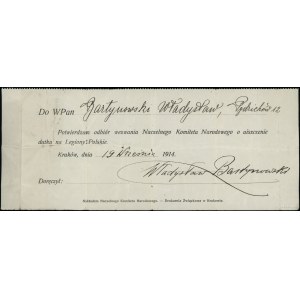 Do WPan Bartynowski Władysław,
Potwierdzam odbiór wezwania Naczelnego Komitetu Narodowego o uiszczenie
datku na Legiony Polskie.
Kraków, dnia 19 Września 1914.
Doręczył: Władysław Bartynowski
Nakładem Naczelnego Komitetu Narodowego. — Drukarnia Związkowa w Krakowie.